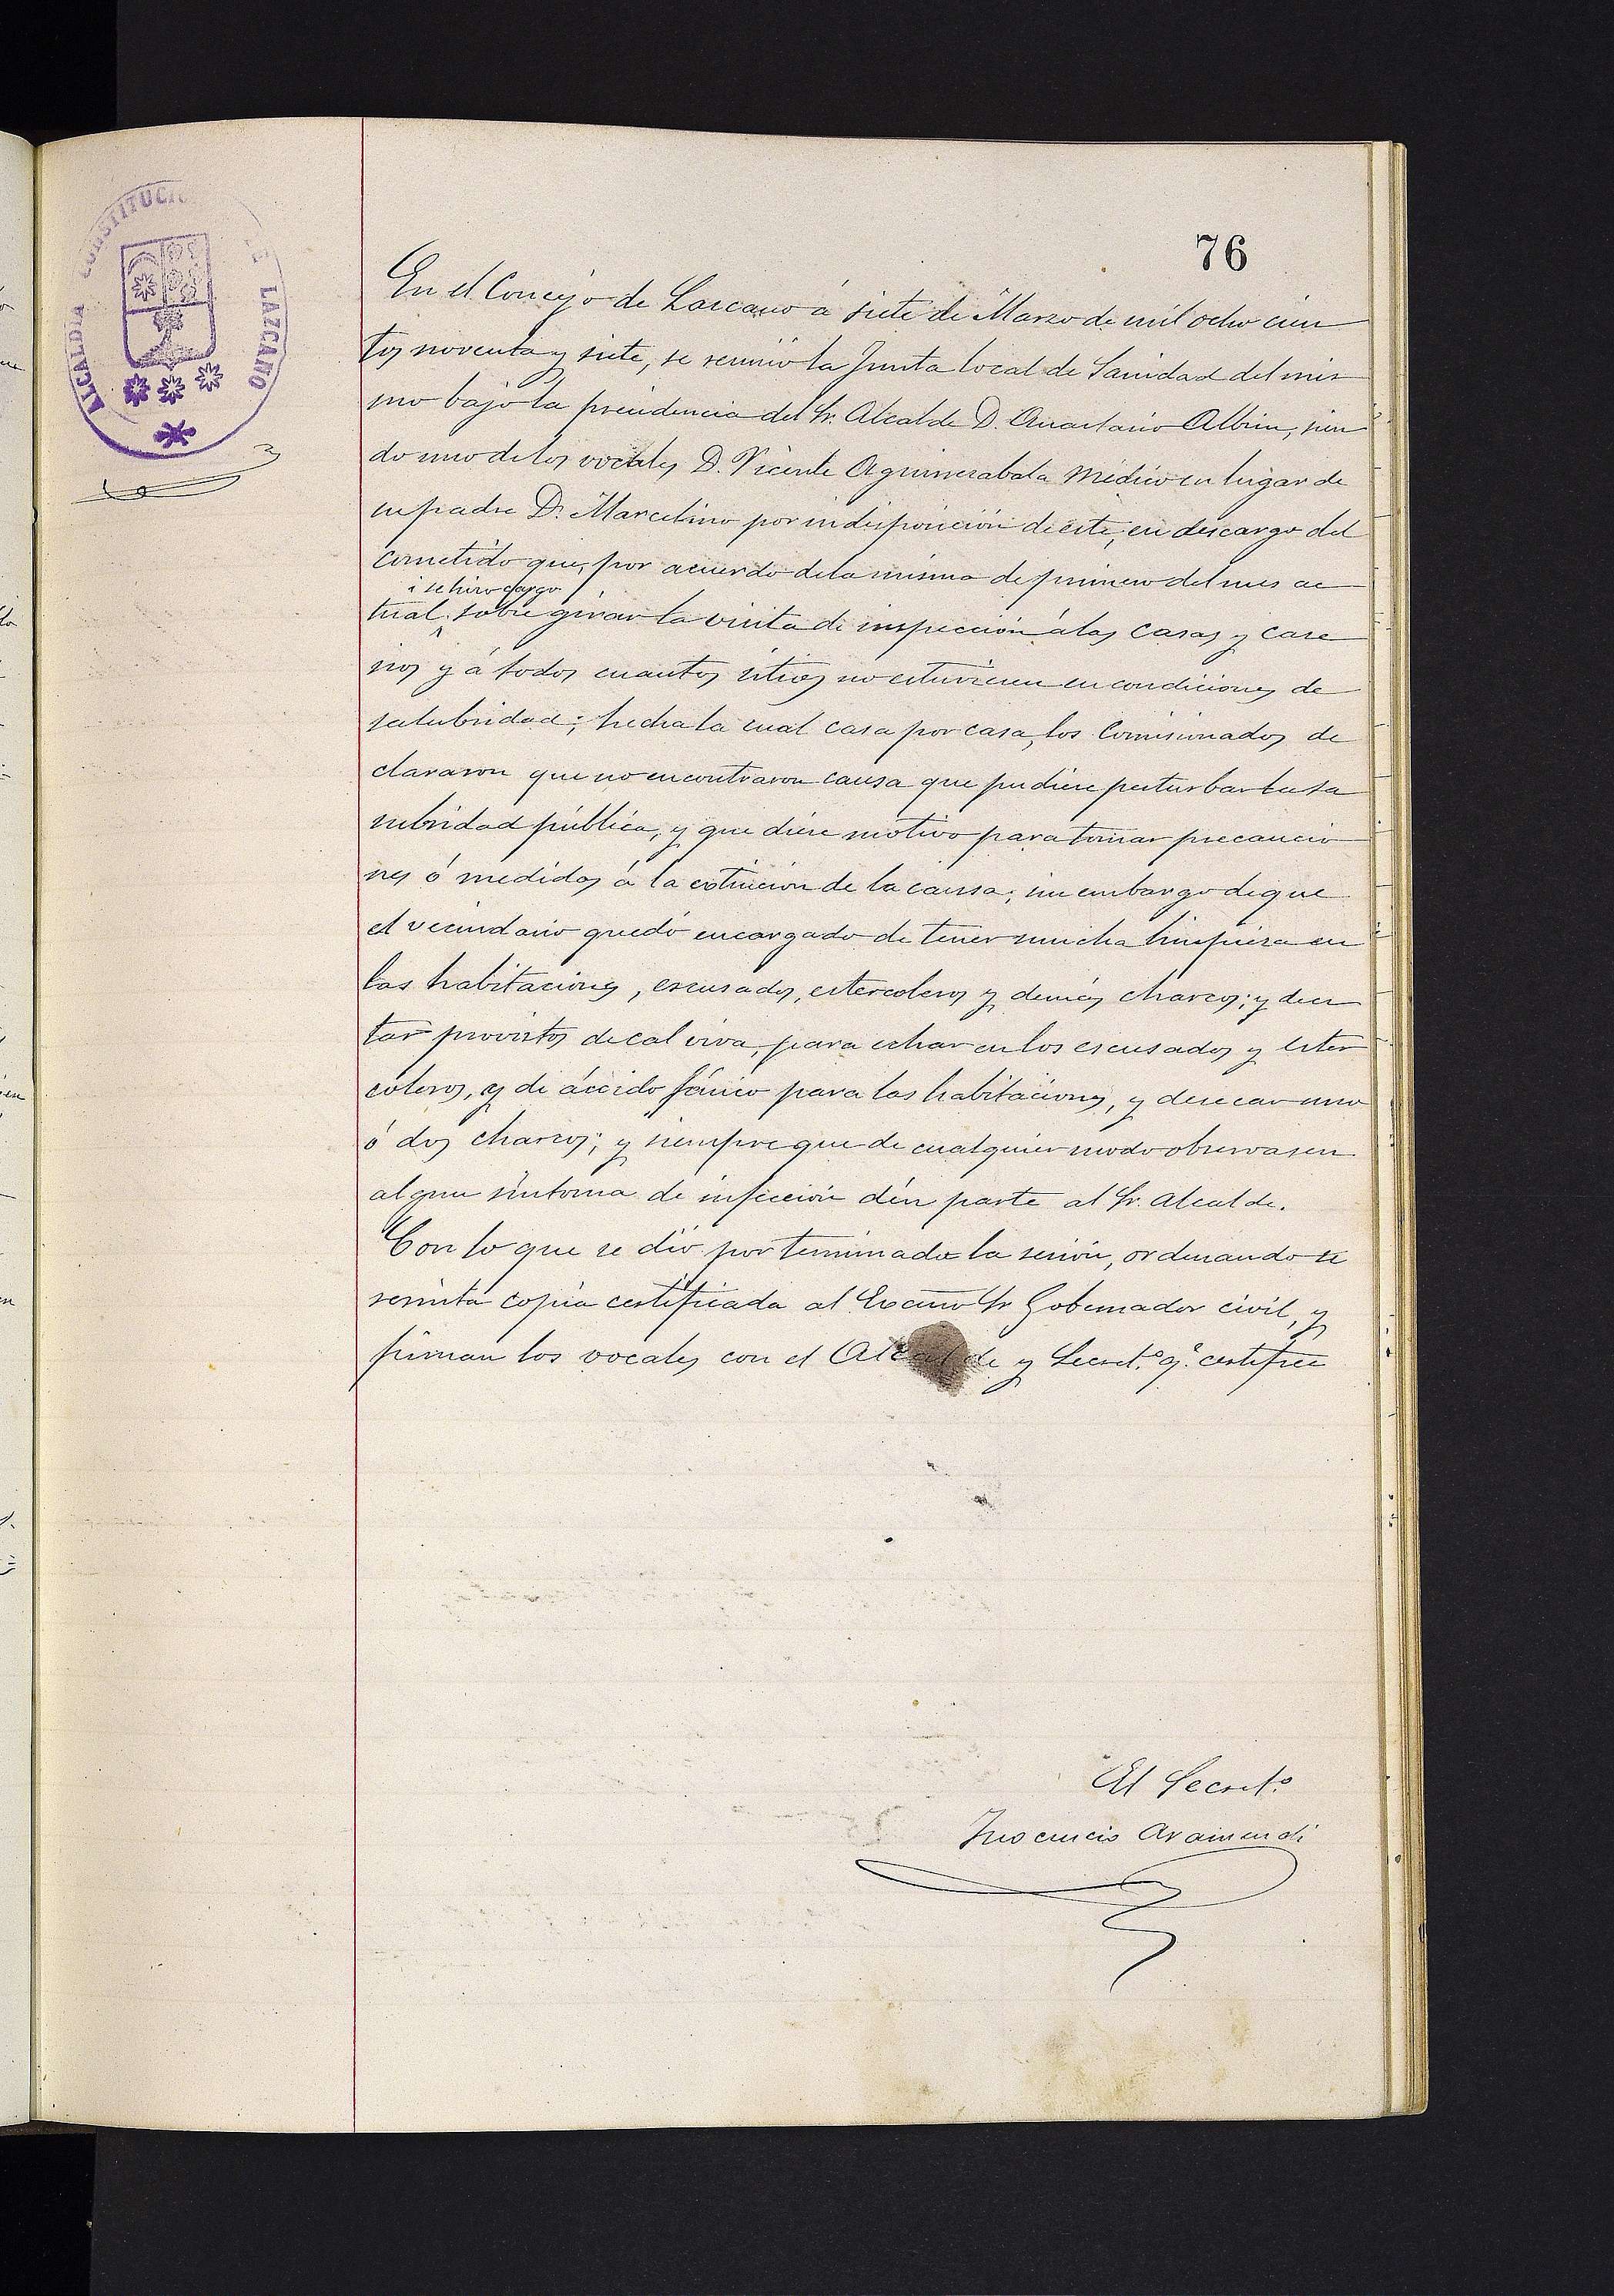 76
ALCALDIA CONSTITUCI E LAZCANO
En el Concejo de Lazcano á siete de Marzo de mil ocho cien
tos noventa y siete, se reunió la Junta local de Sanidad del mis
mo bajo la presidencia del Sr. Alcalde D. Anastasio Albisu, sien
do uno de los vocales D. Vicente Aguinzabala Médico en lugar de
su padre D. Marcelino por indisposición de este, en descargo del
cometido que, por acuerdo de la misma de primero del mes ac
i se hizo cargo
tual, sobre girar la visita de inspección á las casas y case
rios y á todos cuantos sitios no estuviesen en condiciones de
salubridad; hecha la cual casa por casa, los Comisionados de
clararon que no encontraron causa que pudiese perturbar la sa
lubridad pública, y que diese motivo para tomar precaucio
nes ó medidas á la estinción de la causa; sin embargo de que
el vecindario quedó encargado de tener mucha limpieza en
las habitaciones, escusados, estercoleros y demás charcos; y de es
tar provistos de cal viva, para echar en los escusados y ester
coleros, y de áccido fánico para las habitaciones, y desecar uno
ó dos charcos; y siempre que de cualquier modo observasen
algun síntoma de infección dén parte al Sr. Alcalde.
Con lo que se dió por terminada la sesión, ordenando se
remita copia certificada al Excmo Sr. Gobernador civil, y
firman los vocales con el Alcalde y Secret.º q.e certifico
El Secret.º
Inocencio Aramendi